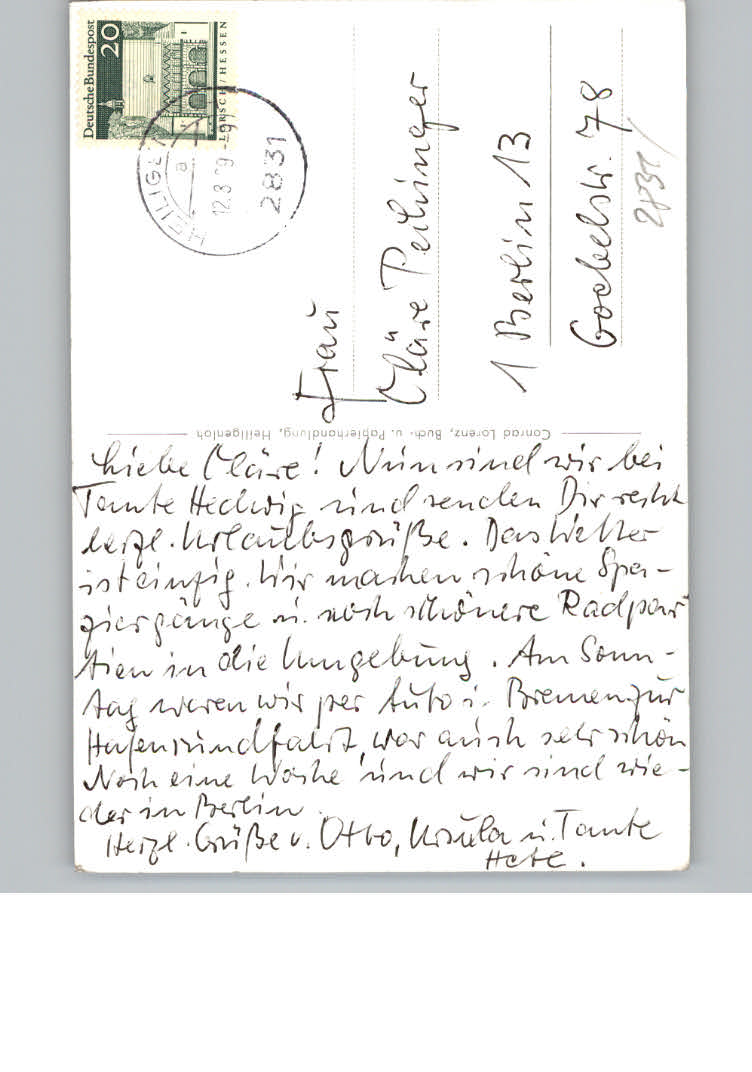 Deutsche Bundespost
20
LORSCH/HESSEN
HEILIGEN
a
12.8.69-9
2831
Frau
Cläre Peilinger
1 Berlin 13
Goebelstr. 78
2831
Conrad Lorenz, Buch- u. Papierhandlung, Heiligenloh
Liebe Cläre! Nun sind wir bei
Tante Hedwig und senden Dir recht
herzl. Urlaubsgrüße. Das Wetter
ist einzig. Wir machen schöne Spa-
ziergänge u. noch schönere Radpar
tien in die Umgebung. Am Sonn-
tag waren wir per Auto i. Bremen zur
Hafenrundfahrt, war auch sehr schön
Noch eine Woche und wir sind wie-
der in Berlin.
Herzl. Grüße v. Otto, Ursula u. Tante
Hete.